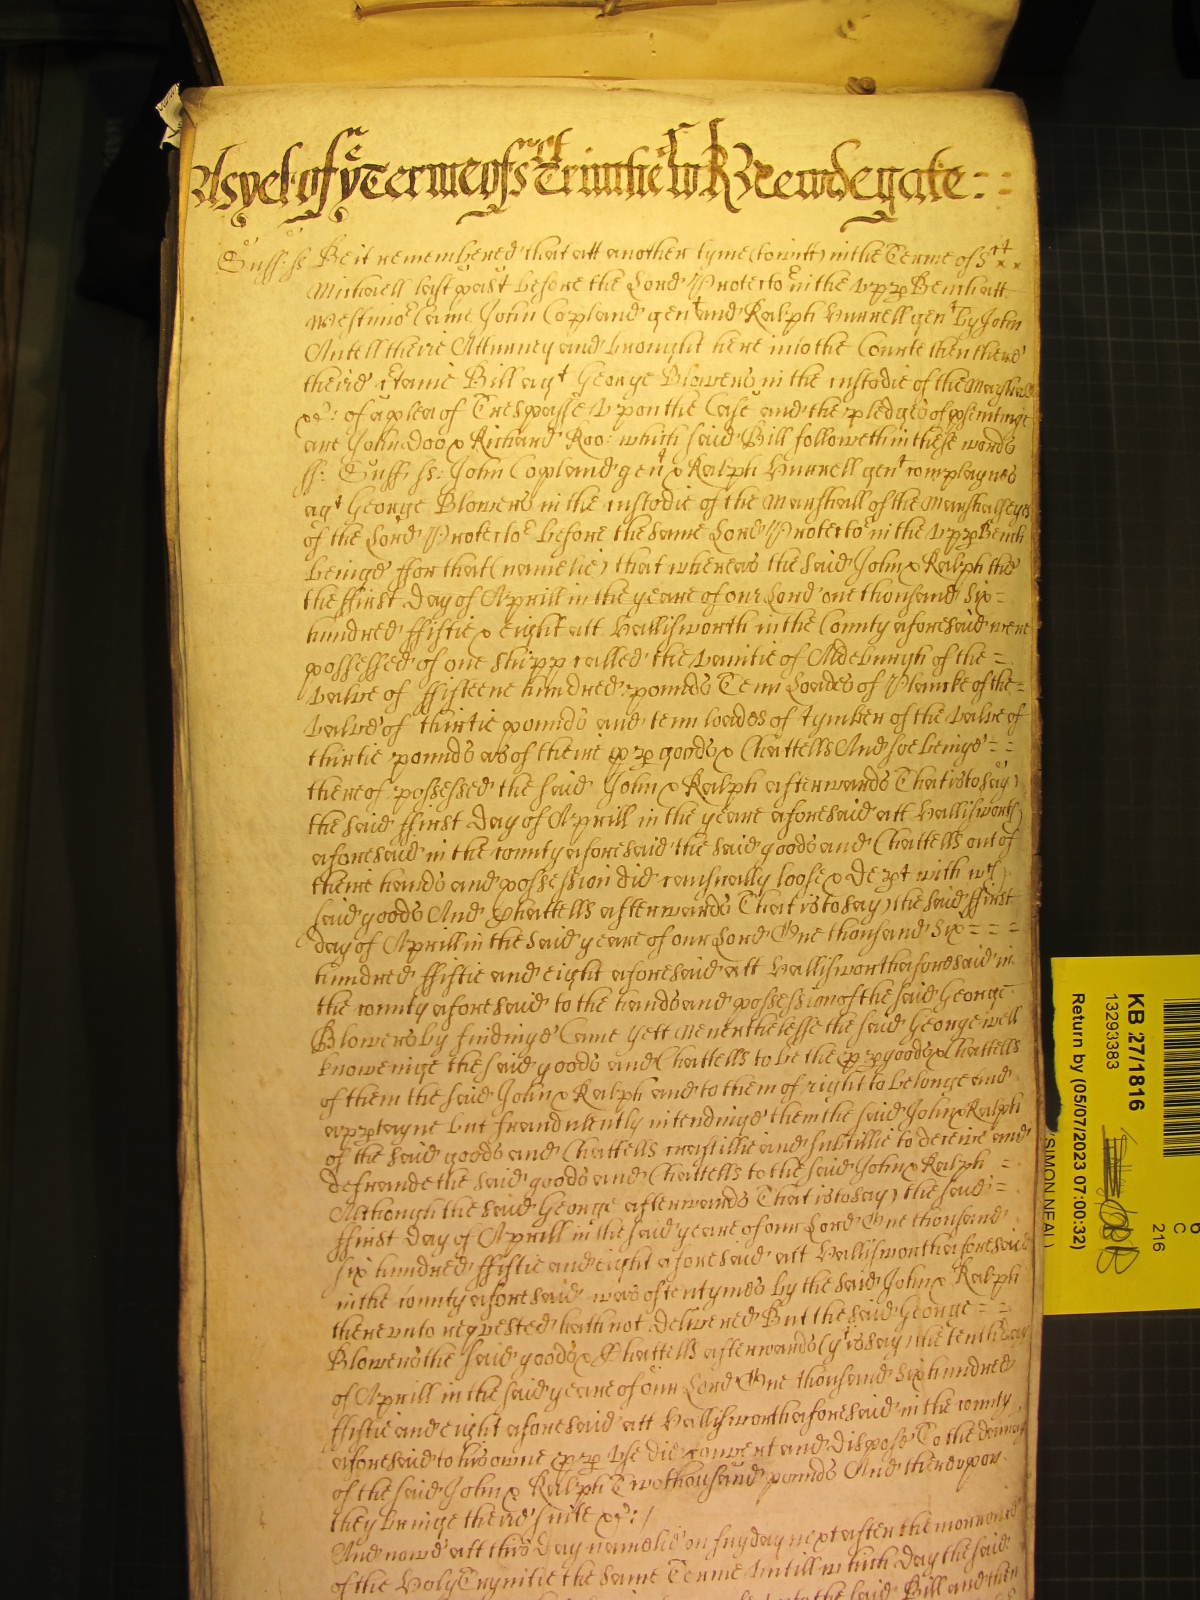 As yet of ye Terme of St Trinitie Wit Ro Newdegate = =
Suff: ss Be it remembred that att another tyme (to witt) in the Terme of St
Michaell last past before the Lord Protector in the vpper Bench att
Westmr Came John Copland gent and Ralph Hurrell gent by John
Antell theire Atturney and brought here into the Courte then there
theire Bill agt George Blowers in the custodie of the Marshall
&c: of a plea of Trespasse vpon the Case and the pledges of psecutinge
are John doo & Richard Roo: which said Bill followeth in these words
ss: Suff: ss: John Copland gent & Ralph Hurrell gent complaynes
agt George Blowers in the custodie of the Marshall of the Marshallseys
of the Lord Protector before the same Lord Protector in the vpper Bench
beinge ffor that (namelie) that whereas the said John & Ralph the
the ffirst day of Aprill in the yeare of our Lord one thousand six =
hundred ffiftie & eight att Hallisworth in the County aforesaid were
possessed of one shipp called the vanitie of Aldeburgh of the =
value of ffifteene hundred pounds Tenn Loades of Plancke of the =
value of thirtie pounds and tenn loades of tymber of the value of
thirtie pounds as of theire pper goods & Chattells And soe beinge = =
thereof possessed the said John & Ralph afterwards That is to say)
the said ffirst day of Aprill in the yeare aforesaid att Hallisworth
aforesaid in the county aforesaid the said goods and Chattells out of
theire hands and possession did casually loose & dept with wch
said goods And Chattells afterwards That is to say) the said ffirst
day of Aprill in the said yeare of our Lord One thousand six = = =
hundred ffiftie and eight aforesaid att Hallisworth aforesaid in
the county aforesaid to the hands and possession of the said George
Blowers by findinge Came yett Neverthelesse the said George well
knoweinge the said goods and Chattells to be the pper goods & Chattells
of them the said John & Ralph and to them of right to belonge and
apptayne but fraudulently intendinge them the said John & Ralph
of the said goods and Chattells craftillie and subtillie to deceive and
defraude the said goods and Chattells to the said John & Ralph =
Although the said George afterwards That is to say) the said =
ffirst day of Aprill in the said yeare of our Lord One thousand
six hundred ffiftie and eight aforesaid att Hallisworth aforesaid
in the county aforesaid was oftentymes by the said John & Ralph
therevnto requested hath not delivered But the said George = =
Blowers the said goods & Chattells afterwards (yt is say) the tenth day
of Aprill in the said yeare of our Lord One thousand six hundred
ffiftie and eight aforesaid att Hallisworth aforesaid in the county
aforesaid to his owne pper vse did convert and dispose To the damag
of the said John & Ralph Two thousand pounds And therevpon
they bringe theire suite &c: /
And nowe att this day namelie on fryday next after the morrowe
of the Holy Trynitie the same Terme vntill which day the said
the said Bill and then
KB 27/1816
13293383
Return by (05/07/2023 07:00:32)
(SIMON NEAL)
C
216